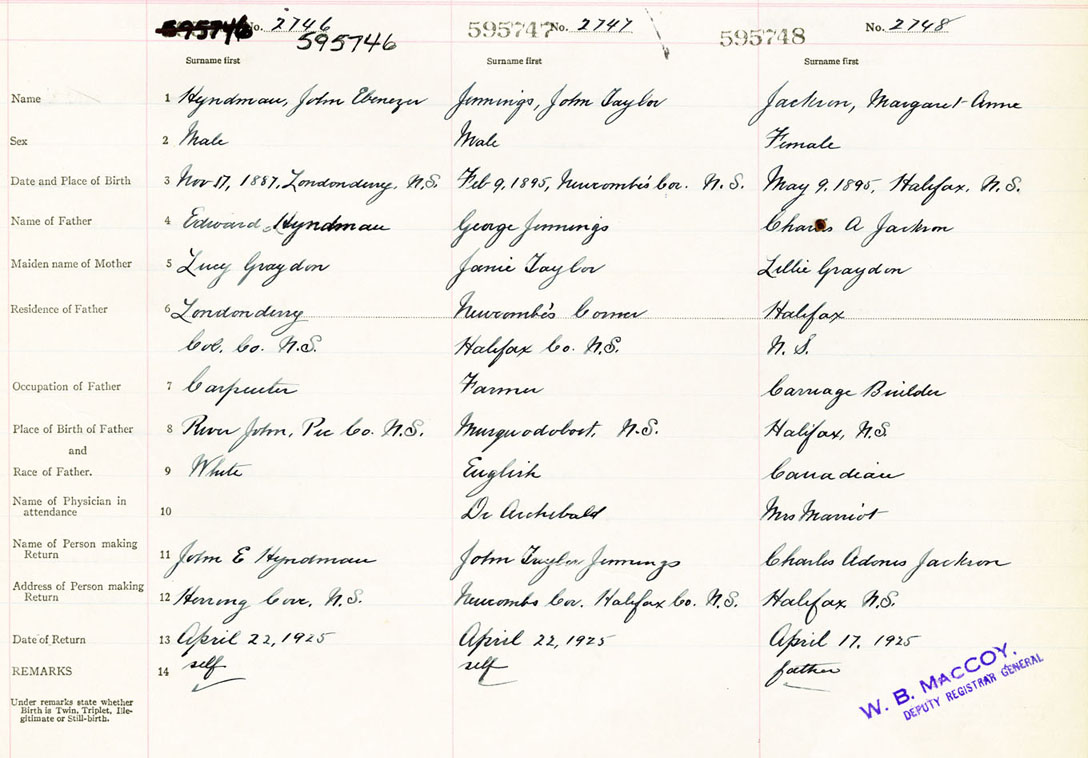 595746 No. 2746 595747 No. 2747 595748 No. 2748
595746
Surname first Surname first Surname first
Name 1 Hyndman, John Ebenezer Jennings, John Taylor Jackson, Margaret Anne
Sex 2 Male Male Female
Date and Place of Birth 3 Nov 17, 1887, Londonderry, N.S. Feb 9, 1895, Newcombe's Cor. N.S. May 9, 1895, Halifax, N.S.
Name of Father 4 Edward Hyndman George Jennings Charles A Jackson
Maiden name of Mother 5 Lucy Graydon Janie Taylor Lillie Graydon
Residence of Father 6 Londonderry Newcombe's Corner Halifax
Col. Co. N.S. Halifax Co. N.S. N.S.
Occupation of Father 7 Carpenter Farmer Carriage Builder
Place of Birth of Father 8 River John, Pic Co. N.S. Musquodoboit, N.S. Halifax, N.S.
and
Race of Father. 9 White English Canadian
Name of Physician in
attendance 10 Dr Archibald Mrs Marriot
Name of Person making
Return 11 John E Hyndman John Taylor Jennings Charles Adonis Jackson
Address of Person making
Return 12 Herring Cove, N.S. Newcombs Cor. Halifax Co. N.S. Halifax N.S.
Date of Return 13 April 22, 1925 April 22, 1925 April 17, 1925
REMARKS 14 self self father
Under remarks state whether
Birth is Twin, Triplet, Ille-
gitimate or Still-birth.
W. B. MACCOY,
DEPUTY REGISTRAR GENERAL